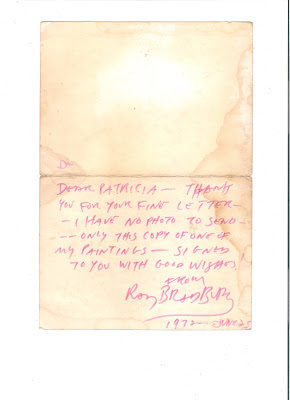 Dea
DEAR PATRICIA — THANK
YOU FOR YOUR FINE LETTER —
— I HAVE NO PHOTO TO SEND —
-- ONLY THIS COPY OF ONE OF
MY PAINTINGS — SIGNED
TO YOU WITH GOOD WISHES
FROM
RAY BRADBURY
1972 — JUNE 25